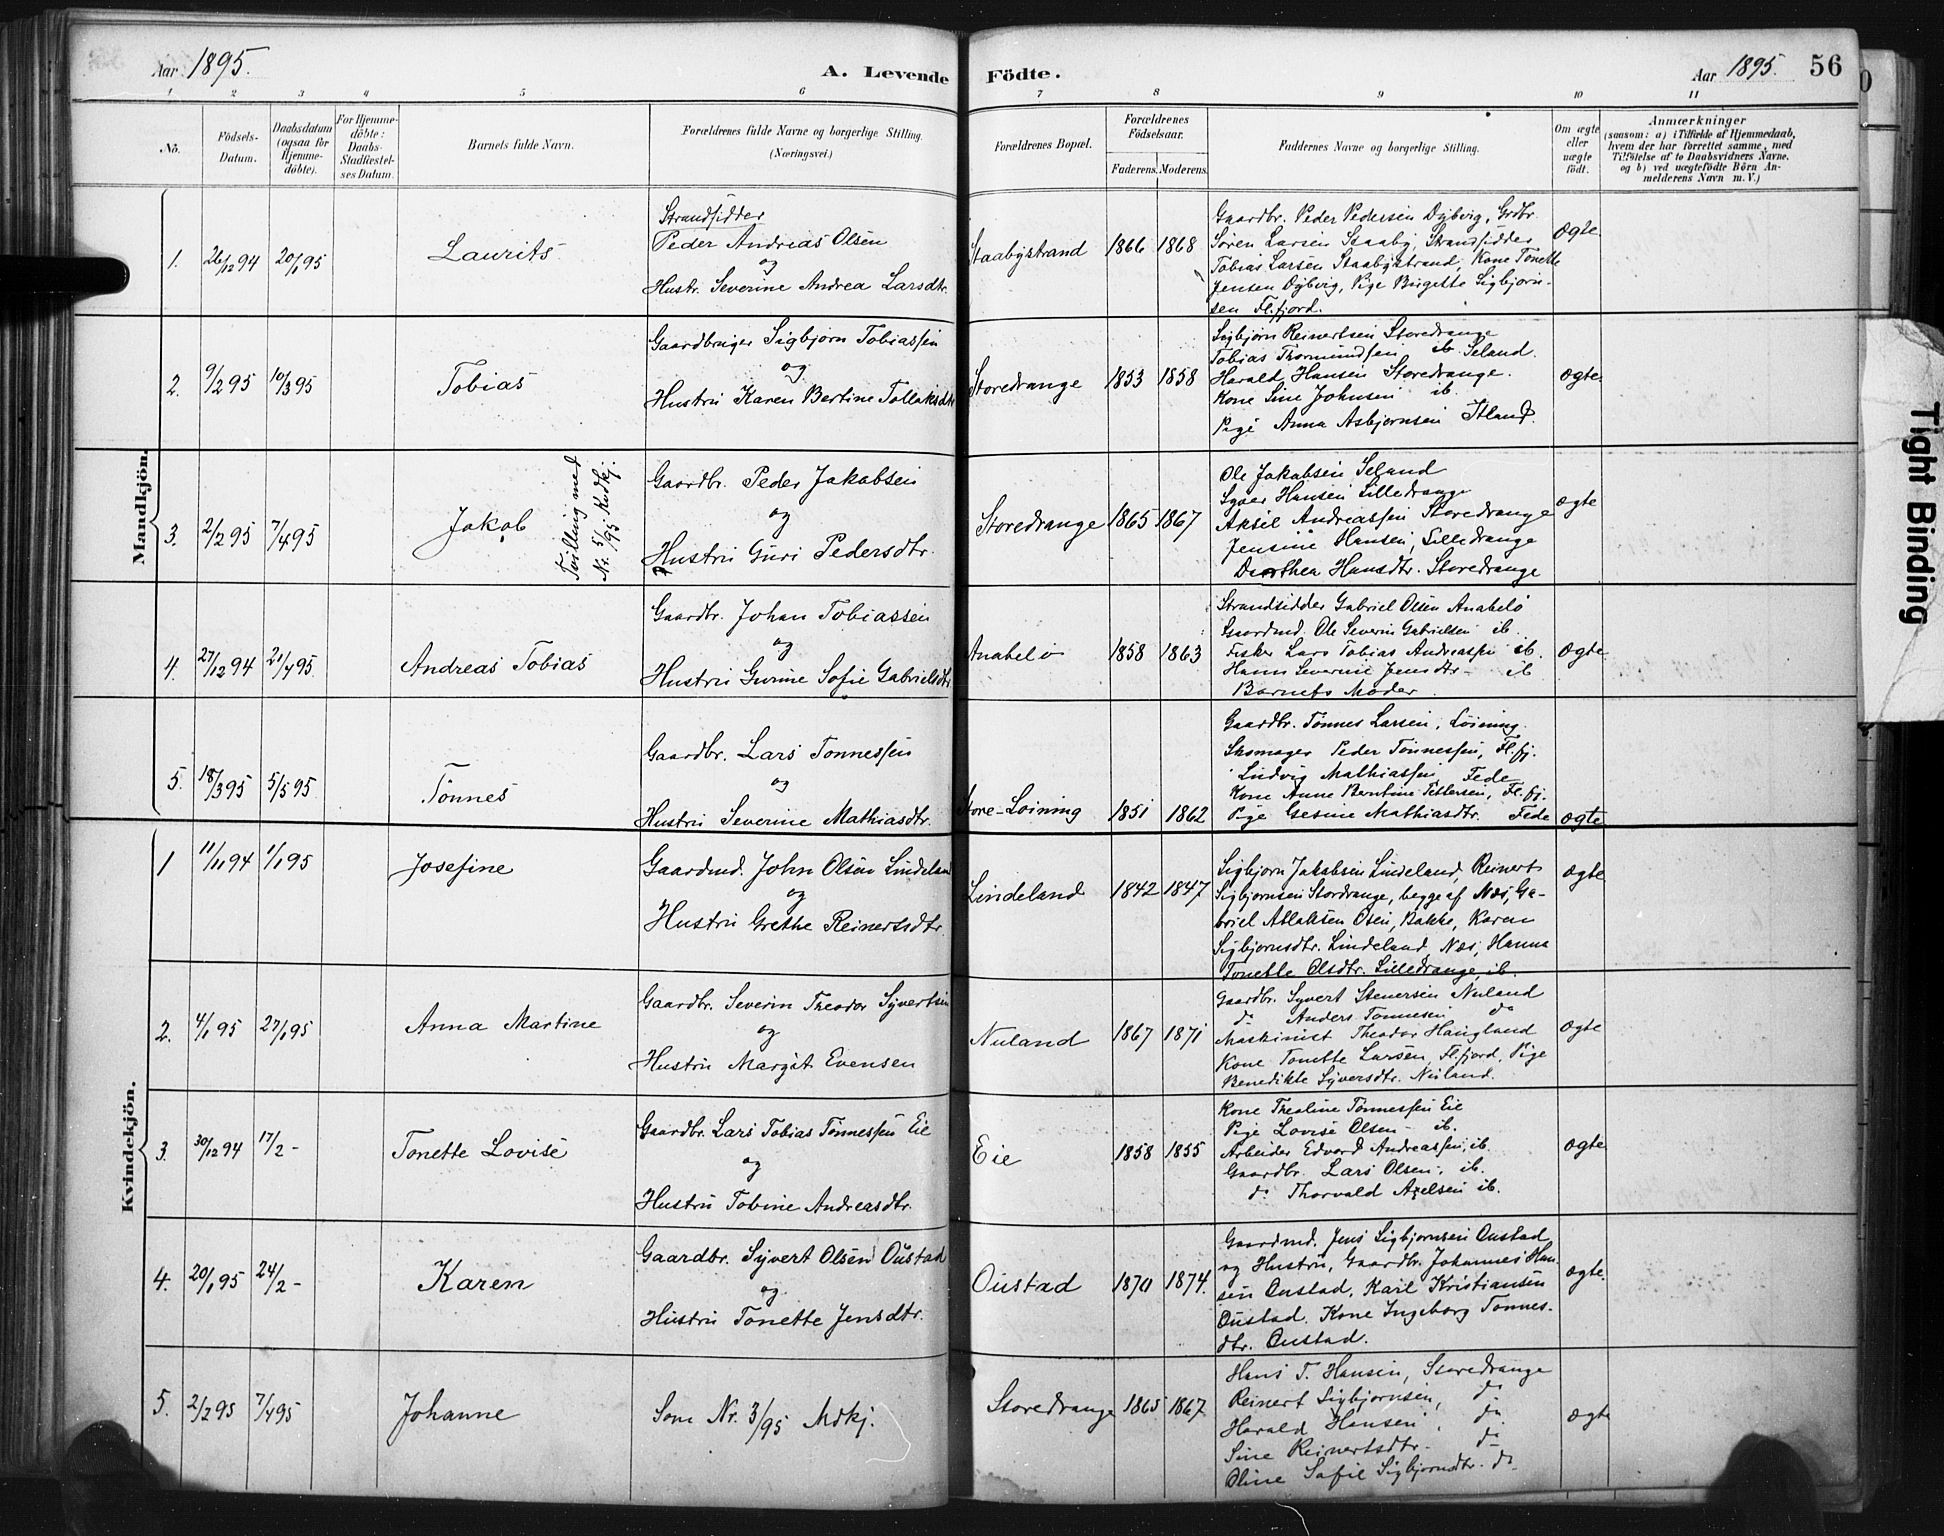 Aar 1895.
A. Levende Födte.
Aar 1895. 56
1 2 3 4 5 6 7 8 9 10 11
Nö.
Födsels-Datum.
Daabsdatum (ogsaa for Hjemme-döbte).
For Hjemme-döbte: Daabs-Stadfæstel-ses Datum.
Barnets fulde Navn.
Forældrenes fulde Navne og borgerlige Stilling. (Næringsvei.)
Forældrenes Bopæl.
Forældrenes Födselsaar.
Faderens. Moderens.
Faddernes Navne og borgerlige Stilling.
Om ægte eller uægte födt.
Anmærkninger
(saasom: a) i Tilfælde af Hjemmedaab,
hvem der har forrettet samme, med
Tilföielse af to Daabsvidners Navne.
og b) ved uægtefödte Börn An-
melderens Navn m. V.)
Mandkjön.
1. 26/12 94 20/1 95 Laurits
Strandsidder
Peder Andreas Olsen
og
Hustr. Severine Andrea Larsdtr.
Staabystrand 1866 1868
Gaardbr. Peder Pedersen Dybvig, Grdbr.
Sören Larsen Staaby, Strandsidder
Tobias Larsen Staabystrand, Kone Tonette
Jensen Dybvig, Pige Birgette Sigbjörn-
sen Fl.fjord.
ægte
2. 9/2 95 10/3 95 Tobias
Gaardbruger Sigbjörn Tobiassen
og
Hustru Karen Bertine Tollaksdtr
Storedrange 1853 1858
Sigbjörn Reinertsen Storedrange
Tobias Thormundsen ib Seland.
Harald Hansen Storedrange.
Kone Sine Johnsen ib.
Pige Anna Asbjörnsen Itland.
ægte.
3. 2/2 95 7/4 95 Jakob
Tvilling med
Nr. 5/95 Kvdkj.
Gaardbr. Peder Jakobsen
og
Hustru Guri Pedersdtr.
Storedrange 1865 1867
Ole Jakobsen Seland
Hansen Lilledrange
Aksel Andreassen Storedrange
Jensine Hansen, Lilledrange
Dorthea Hansdtr. Storedrange
ægte
4. 27/12 94 21/4 95. Andreas Tobias
Gaardbr. Johan Tobiassen
og
Hustru Gurine Sofie Gabrielsdtr
Anabelö 1858 1863
Strandsidder Gabriel Olsen Anabelö
Gaardmd. Ole Severin Gabrielsen ib.
Fisker Lars Tobias Andreassen ib.
Hanna Severine Jensdtr - ib
Barnets Moder.
ægte
5. 18/3 95 5/5 95 Tönnes
Gaardbr. Lars Tönnessen
og
Hustru Severine Mathiasdtr.
Store-Loining 1851 1862
Gaardbr. Tönnes Larsen, Loining.
Skomager Peder Tönnessen, Fl.fj.
Ludvig Mathiassen Fede
Kone Anne Berntine Pettersen, Fl.fj.
Pige Gesine Mathiasdtr. Fede
ægte
Kvindekjön.
1 11/11 94 1/1 95 Josefine
Gaardmd. John Olsen Lindeland
og
Hustru Grethe Reinertsdtr.
Lindeland 1842 1847
Sigbjörn Jakobsen Lindeland, Reinert
Sigbjörnsen Stordrange, begge af Næs, Ga-
briel Atlaksen Osen, Bakke, Karen
Sigbjörnsdtr. Lindeland, Næs, Hanna
Tonette Olsdtr. Lilledrange, ib.
ægte
2. 4/1 95 27/1 95 Anna Martine
Gaardbr. Severin Theodor Syvertsen
og
Hustru Margit Evensen
Nuland 1867 1871
Gaardbr. Syvert Stenersen Nuland
do Anders Tönnesen do
Maskinist Theodor Haugland
Kone Tonette Larsen, Fl.fjord, Pige
Benedikte Syversdtr. Nuland.
ægte
3. 30/12 94 17/2 - Tonette Lovise
Gaardbr. Lars Tobias Tönnessen Eie
og
Hustru Tobine Andreasdtr.
Eie 1858 1855
Kone Thealine Tönnessen Eie
Pige Lovise Olsen - ib.
Arbeider Edvard Andreassen, ib.
Gaardbr. Lars Olsen, ib.
do Thorvald Axelsen ib.
ægte
4. 20/1 95 24/2 - Karen
Gaardbr. Syvert Olsen Oustad
og
Hustru Tonette Jensdtr.
Oustad 1870 1874.
Gaardmd. Jens Sigbjörnsen Oustad
og Hustru, Gaardbr. Johannes Han-
sen Oustad, Karl Kristiansen
Oustad. Kone Ingeborg Tönnes-
dtr. Oustad.
ægte.
5. 2/2 95 7/4 95 Johanne
Som Nr. 3/95 Mdkj.
Storedrange 1865 1867
Hans T. Hansen, Storedrange
Reinert Sigbjörnsen, do
Harald Hansen, do
Sine Reinertsdtr. do
Oline Sofie Sigbjörnsdtr. do
ægte
Tight Binding